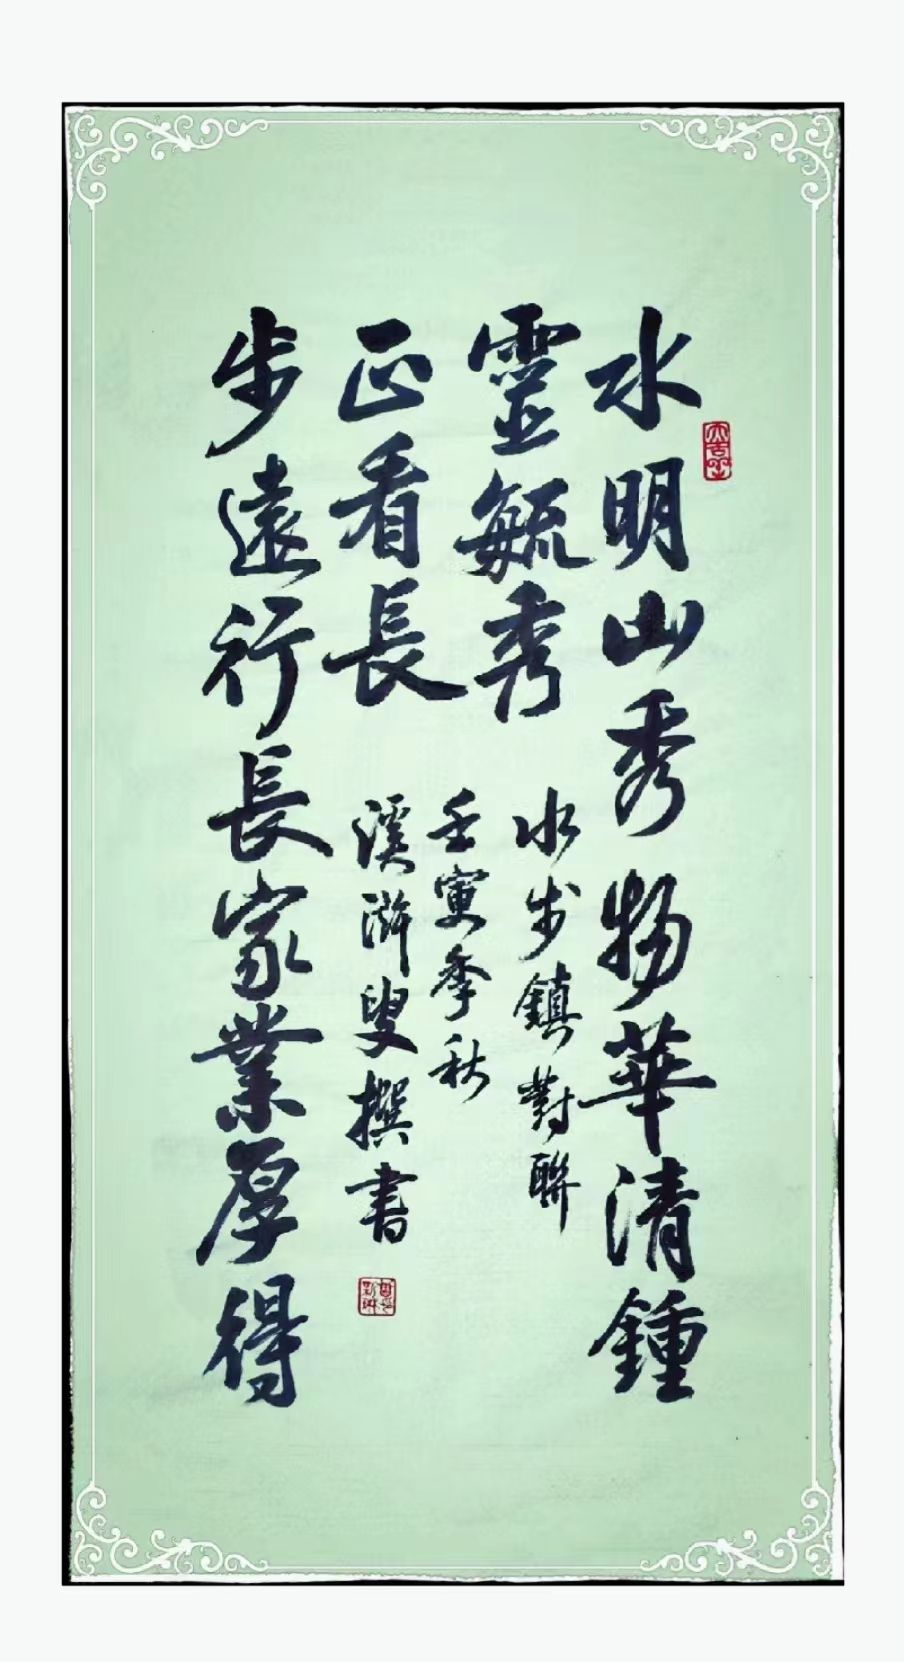 水明山秀物華清鍾
靈毓秀
水步鎮對聯
步遠行長家業厚得
正看長
壬寅季秋
溪叟撰書